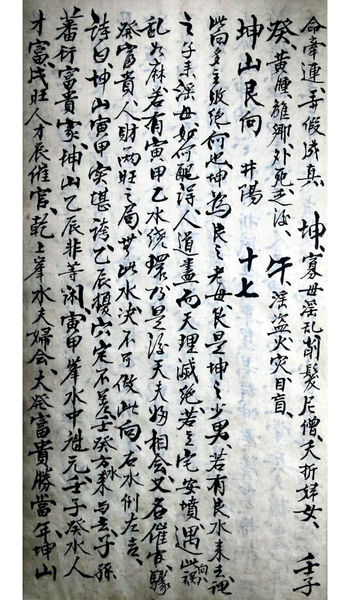 命牵連弄假成真、坤、寡母淫乱削髮尼僧、夭折婢女、壬子
癸黃腫、離鄉外死乏後、午、淫盗火灾目盲、
坤山艮向 井陽 十七
此向多主敗絶何也坤為艮之老母艮是坤之少男、若有艮水来去謂
之子来淫母如何配得人道盡而天理滅絶、若立宅安墳遇此禍
乱如麻若有寅甲乙水繞環乃是後天夫婦相会又名催官驟
發富貴、人財兩旺之局、若此水决不可做此向、右水倒左吉、
詩曰、坤山寅甲穴堪誇、乙辰損穴定不差、壬癸方来与去、子孫
蕃衍富貴家、坤山乙辰非等闲、寅甲峯水中魁元、壬子癸水人
才富、戌旺人才辰催官、乾上峯水夫婦会、大發富貴勝當年、坤山